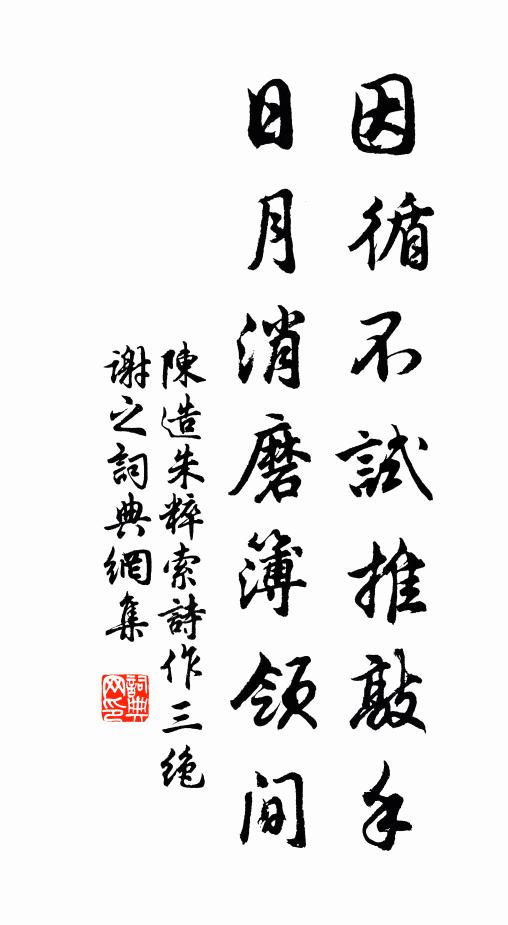 因循不試推敲手
日月消磨簿領間
陳造朱粹索詩作三絶
謝之詞典網集
詞典網印